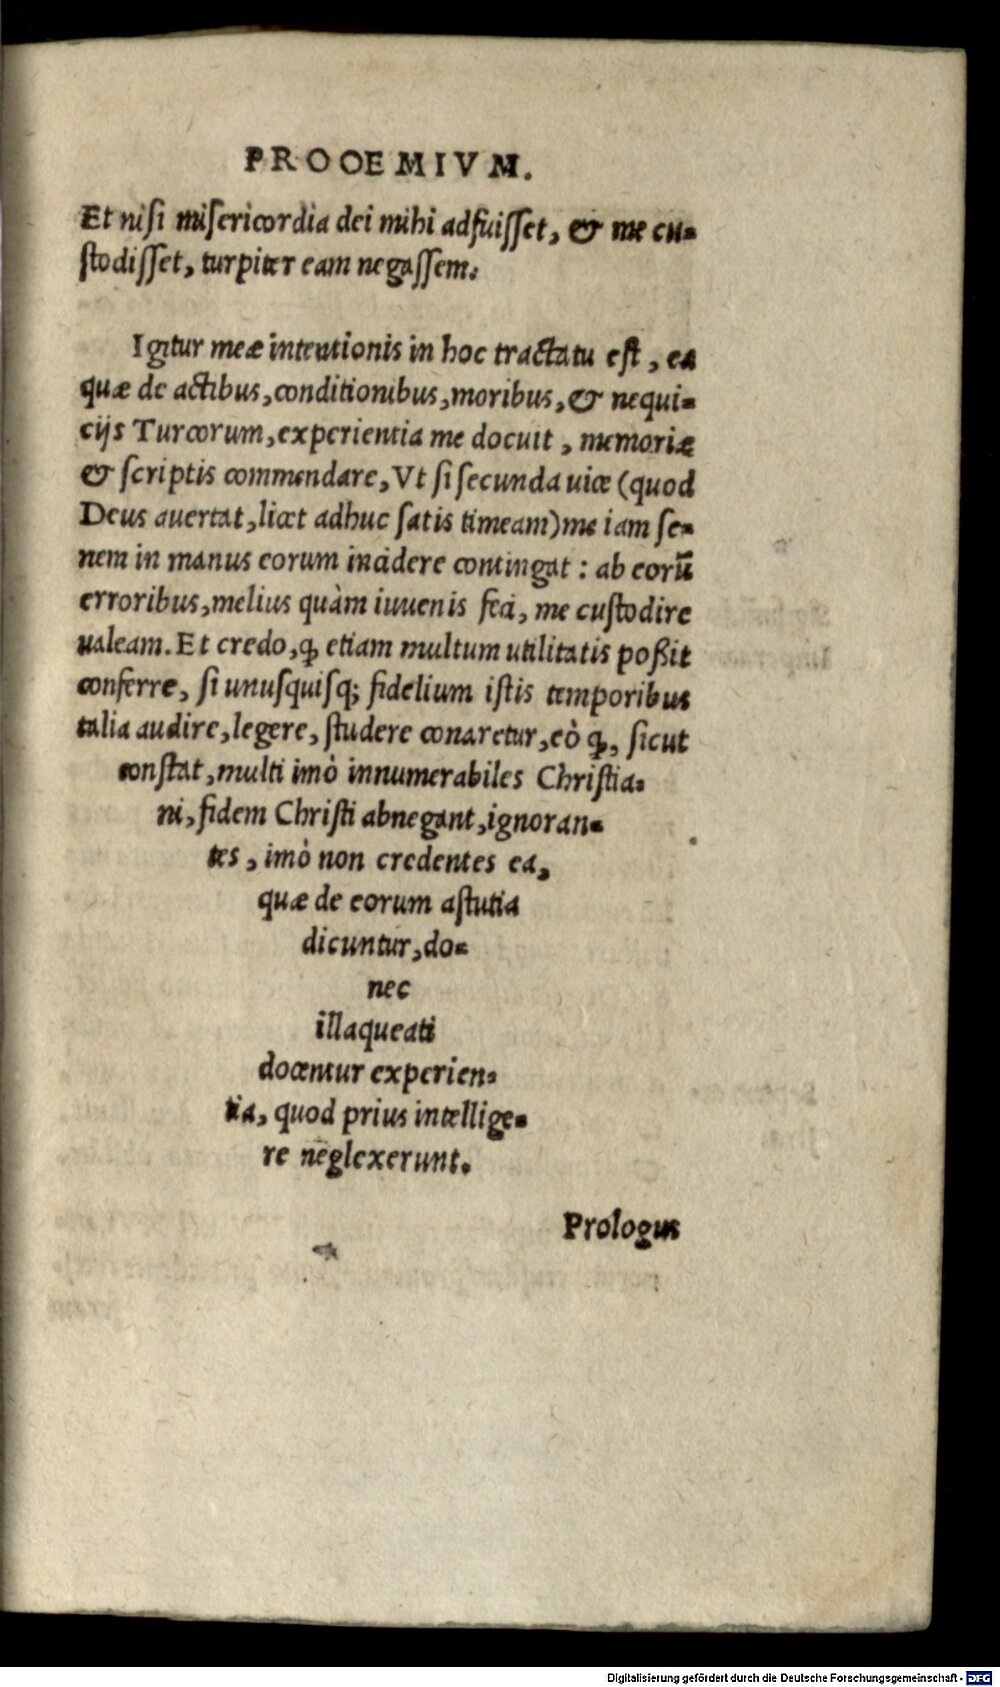 PROOEMIVM.
Et nisi misericordia dei mihi adfuisset, & me cu-
stodisset, turpiter eam negassem.
Igitur meæ intentionis in hoc tractatu est, ea
quæ de actibus, conditionibus, moribus, & nequi-
cijs Turcorum, experientia me docuit, memoriæ
& scriptis commendare, Vt si secunda uice (quod
Deus auertat, licet adhuc satis timeam) me iam se-
nem in manus eorum incidere contingat: ab eorũ
erroribus, melius quàm iuuenis feci, me custodire
ualeam. Et credo, ꝙ etiam multum utilitatis poßit
conferre, si unusquisqꝫ fidelium istis temporibus
talia audire, legere, studere conaretur, eò ꝙ, sicut
constat, multi imò innumerabiles Christia-
ni, fidem Christi abnegant, ignoran-
tes, imò non credentes ea,
quæ de eorum astutia
dicuntur, do-
nec
illaqueati
docentur experien-
tia, quod prius intellige-
re neglexerunt.
Prologus
Digitalisierung gefördert durch die Deutsche Forschungsgemeinschaft - DFG